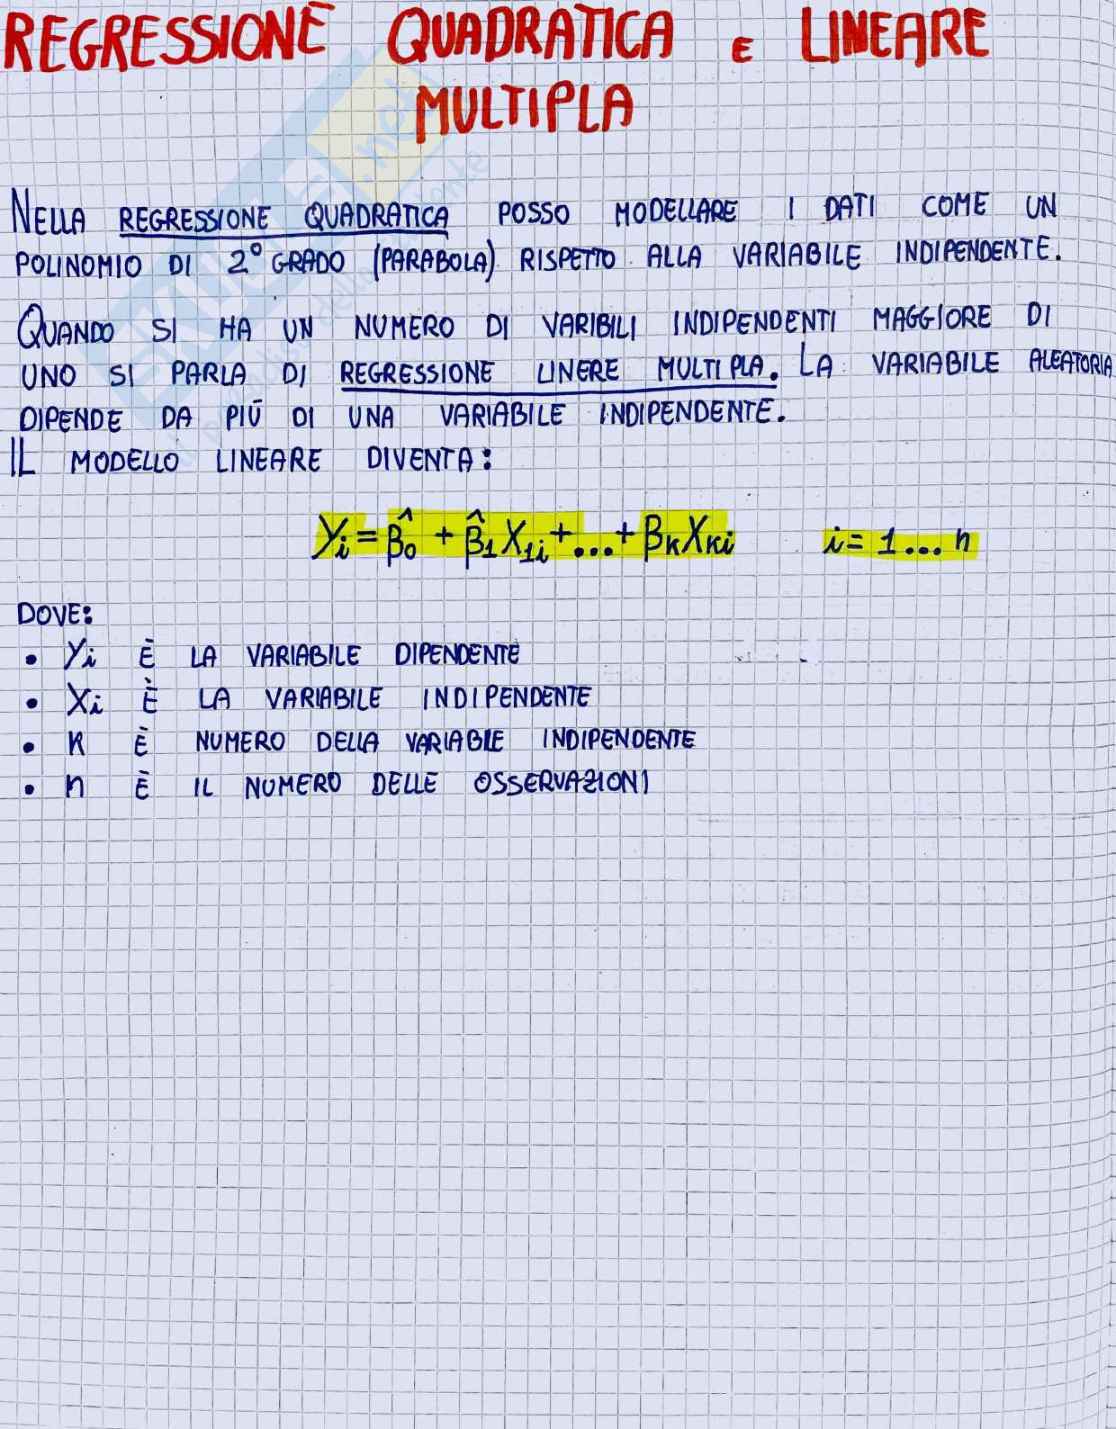 REGRESSIONE QUADRATICA E LINEARE
MULTIPLA
NELLA REGRESSIONE QUADRATICA POSSO MODELLARE I DATI COME UN
POLINOMIO DI 2° GRADO (PARABOLA) RISPETTO ALLA VARIABILE INDIPENDENTE.
QUANDO SI HA UN NUMERO DI VARIBILI INDIPENDENTI MAGGIORE DI
UNO SI PARLA DI REGRESSIONE LINERE MULTIPLA. LA VARIABILE ALEATORIA
DIPENDE DA PIÙ DI UNA VARIABILE INDIPENDENTE.
IL MODELLO LINEARE DIVENTA:
Yi = β̂0 + β̂1 X1i + ... + βK XKi i = 1 ... n
DOVE:
• Yi È LA VARIABILE DIPENDENTE
• Xi È LA VARIABILE INDIPENDENTE
• K È NUMERO DELLA VARIABLE INDIPENDENTE
• n È IL NUMERO DELLE OSSERVAZIONI